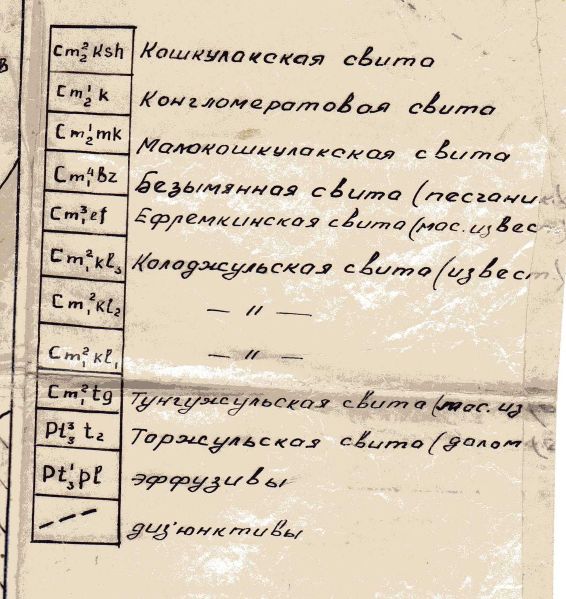 Cm₂²Ksh Кошкулакская свита
Cm₂¹k Конгломератовая свита
Cm₂¹mk Малокошкулакская свита
Cm₁⁴Bz Безымянная свита (песчани
Cm₁³ef Ефремкинская свита (мас. извес
Cm₁²kl₃ Колоджульская свита (извест
Cm₁²kl₂ — " —
Cm₁²kl₁ — " —
Cm₁²tg Тунгужульская свита (мас. из
Pt₃³t₂ Таржульская свита (далом
Pt₃¹pl эффузивы
дизъюнктивы